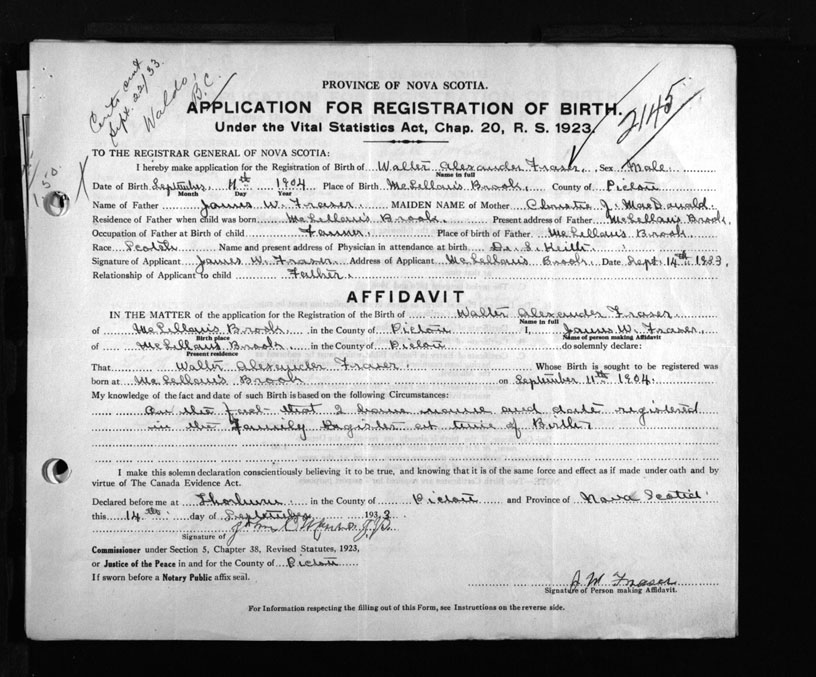 Certs sent
Sept. 22/33.
Waldo,
B.C.
2145
1.50.
PROVINCE OF NOVA SCOTIA.
APPLICATION FOR REGISTRATION OF BIRTH.
Under the Vital Statistics Act, Chap. 20, R. S. 1923.
TO THE REGISTRAR GENERAL OF NOVA SCOTIA:
I hereby make application for the Registration of Birth of Walter Alexander Fraser, Sex Male.
Name in full
Date of Birth September 11th 1904 Place of Birth McLellan's Brook, County of Pictou
Month Day Year
Name of Father James W. Fraser MAIDEN NAME of Mother Christie J. MacDonald.
Residence of Father when child was born McLellan's Brook. Present address of Father McLellan's Brook.
Occupation of Father at Birth of child Farmer. Place of birth of Father McLellan's Brook.
Race Scotch Name and present address of Physician in attendance at birth Dr. S. Keith
Signature of Applicant James W. Fraser. Address of Applicant McLellan's Brook. Date Sept. 14th 1933
Relationship of Applicant to child Father.
AFFIDAVIT
IN THE MATTER of the application for the Registration of the Birth of Walter Alexander Fraser.
Name in full
of McLellan's Brook, in the County of Pictou I, James W. Fraser,
Birth place Name of person making Affidavit
of McLellan's Brook. in the County of Pictou do solemnly declare:
Present residence
That Walter Alexander Fraser. Whose Birth is sought to be registered was
born at McLellan's Brook on September 11th 1904.
My knowledge of the fact and date of such Birth is based on the following Circumstances:
the fact that I have name and date registered
in the Family Register at time of Birth
I make this solemn declaration conscientiously believing it to be true, and knowing that it is of the same force and effect as if made under oath and by
virtue of The Canada Evidence Act.
Declared before me at Thorburn in the County of Pictou and Province of Nova Scotia.
this 14th day of September 1933
Signature of John J.P.
Commissioner under Section 5, Chapter 38, Revised Statutes, 1923,
or Justice of the Peace in and for the County of Pictou
If sworn before a Notary Public affix seal.
J. W. Fraser
Signature of Person making Affidavit.
For Information respecting the filling out of this Form, see Instructions on the reverse side.